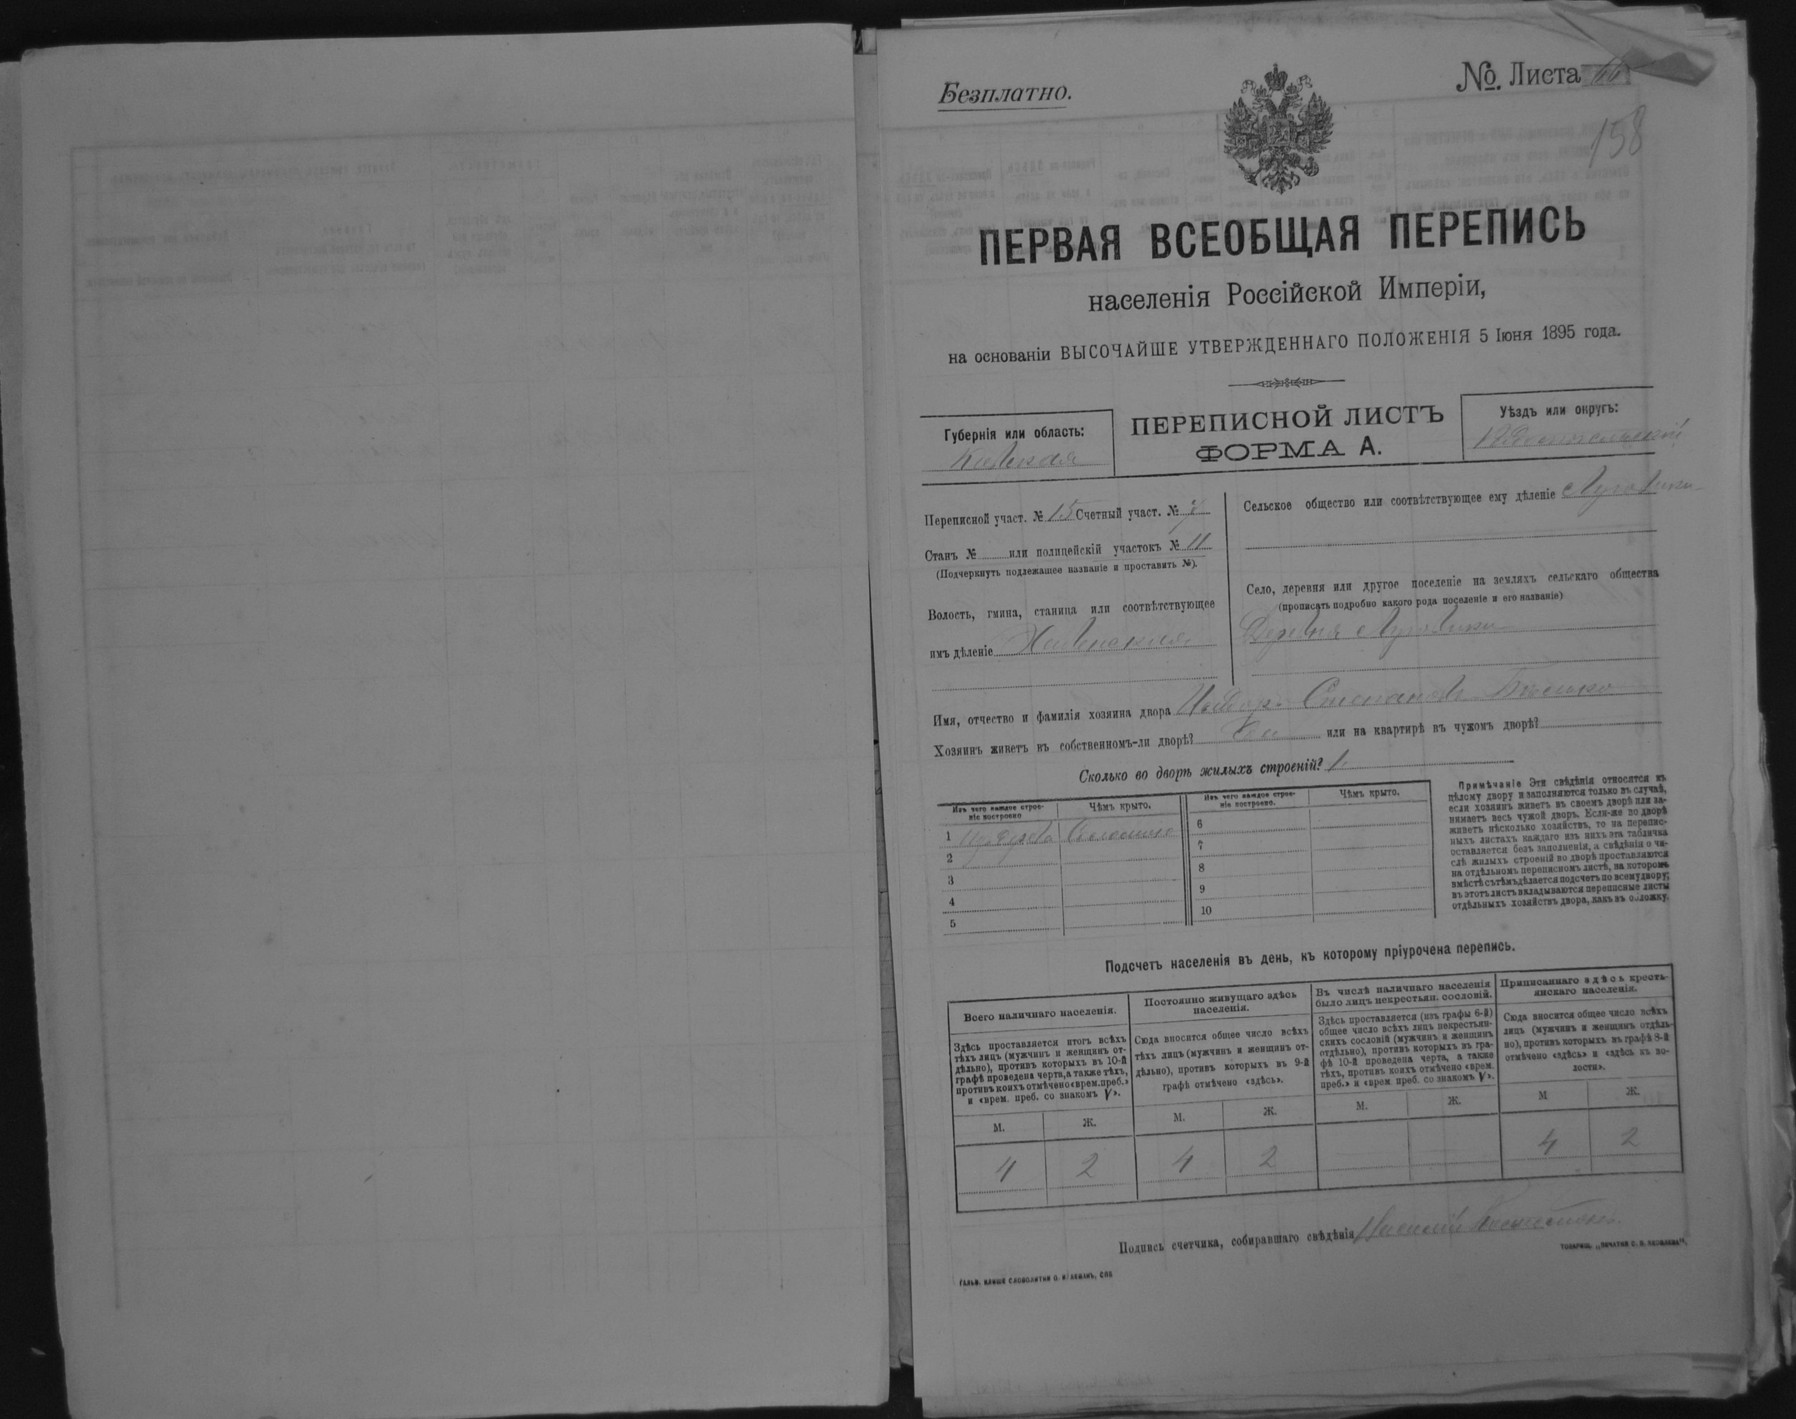 Безплатно.
№. Листа
158
ПЕРВАЯ ВСЕОБЩАЯ ПЕРЕПИСЬ
населенія Россійской Имперіи,
на основаніи ВЫСОЧАЙШЕ УТВЕРЖДЕННАГО ПОЛОЖЕНІЯ 5 Іюня 1895 года.
Губернія или область:
Кіевская
ПЕРЕПИСНОЙ ЛИСТЪ
ФОРМА А.
Уѣздъ или округъ:
Радомысльскій
Переписной участ. № 15 Счетный участ. №
Станъ № или полицейскій участокъ № 11
(Подчеркнуть подлежащее названіе и проставить №).
Волость, гмина, станица или соотвѣтствующее
имъ дѣленіе
Сельское общество или соотвѣтствующее ему дѣленіе
Село, деревня или другое поселеніе на земляхъ сельскаго общества
(прописать подробно какого рода поселеніе и его названіе)
Деревня
Имя, отчество и фамилія хозяина двора Степановъ
Хозяинъ живетъ въ собственномъ-ли дворѣ? или на квартирѣ въ чужомъ дворѣ?
Сколько во дворѣ жилыхъ строеній? 1
Изъ чего каждое строе-
ніе построено
Чѣмъ крыто.
1 Изъ дерева Соломою
2
3
4
5
Изъ чего каждое строе-
ніе построено.
Чѣмъ крыто.
6
7
8
9
10
Примѣчаніе Эти свѣдѣнія относятся къ
цѣлому двору и заполняются только въ случаѣ,
если хозяинъ живетъ въ своемъ дворѣ или за-
нимаетъ весь чужой дворъ. Если-же во дворѣ
живетъ нѣсколько хозяйствъ, то на перепис-
ныхъ листахъ каждаго изъ нихъ эта табличка
оставляется безъ заполненія, а свѣдѣнія о чи-
слѣ жилыхъ строеній во дворѣ проставляются
на отдѣльномъ переписномъ листѣ, на которомъ
вмѣстѣ съ тѣмъ дѣлается подсчетъ по всему двору;
въ этотъ листъ вкладываются переписные листы
отдѣльныхъ хозяйствъ двора, какъ въ обложку.
Подсчетъ населенія въ день, къ которому пріурочена перепись.
Всего наличнаго населенія.
Здѣсь проставляется итогъ всѣхъ
тѣхъ лицъ (мужчинъ и женщинъ от-
дѣльно), противъ которыхъ въ 10-й
графѣ проведена черта, а также тѣхъ,
противъ коихъ отмѣчено «врем. преб.»
и «врем. преб. со знакомъ V».
М.
Ж.
4
2
Постоянно живущаго здѣсь
населенія.
Сюда вносится общее число всѣхъ
тѣхъ лицъ (мужчинъ и женщинъ от-
дѣльно), противъ которыхъ въ 9-й
графѣ отмѣчено «здѣсь».
М.
Ж.
4
2
Въ числѣ наличнаго населенія
было лицъ некрестьян. сословій.
Здѣсь проставляется (изъ графы 6-й)
общее число всѣхъ лицъ некрестьян-
скихъ сословій (мужчинъ и женщинъ
отдѣльно), противъ которыхъ въ гра-
фѣ 10-й проведена черта, а также
тѣхъ, противъ коихъ отмѣчено «врем.
преб.» и «врем. преб. со знакомъ V».
М.
Ж.
Приписаннаго здѣсь кресть-
янскаго населенія.
Сюда вносится общее число всѣхъ
лицъ (мужчинъ и женщинъ отдѣль-
но), противъ которыхъ въ графѣ 8-й
отмѣчено «здѣсь» и «здѣсь въ во-
лости».
М
Ж.
4
2
Подпись счетчика, собиравшаго свѣдѣнія